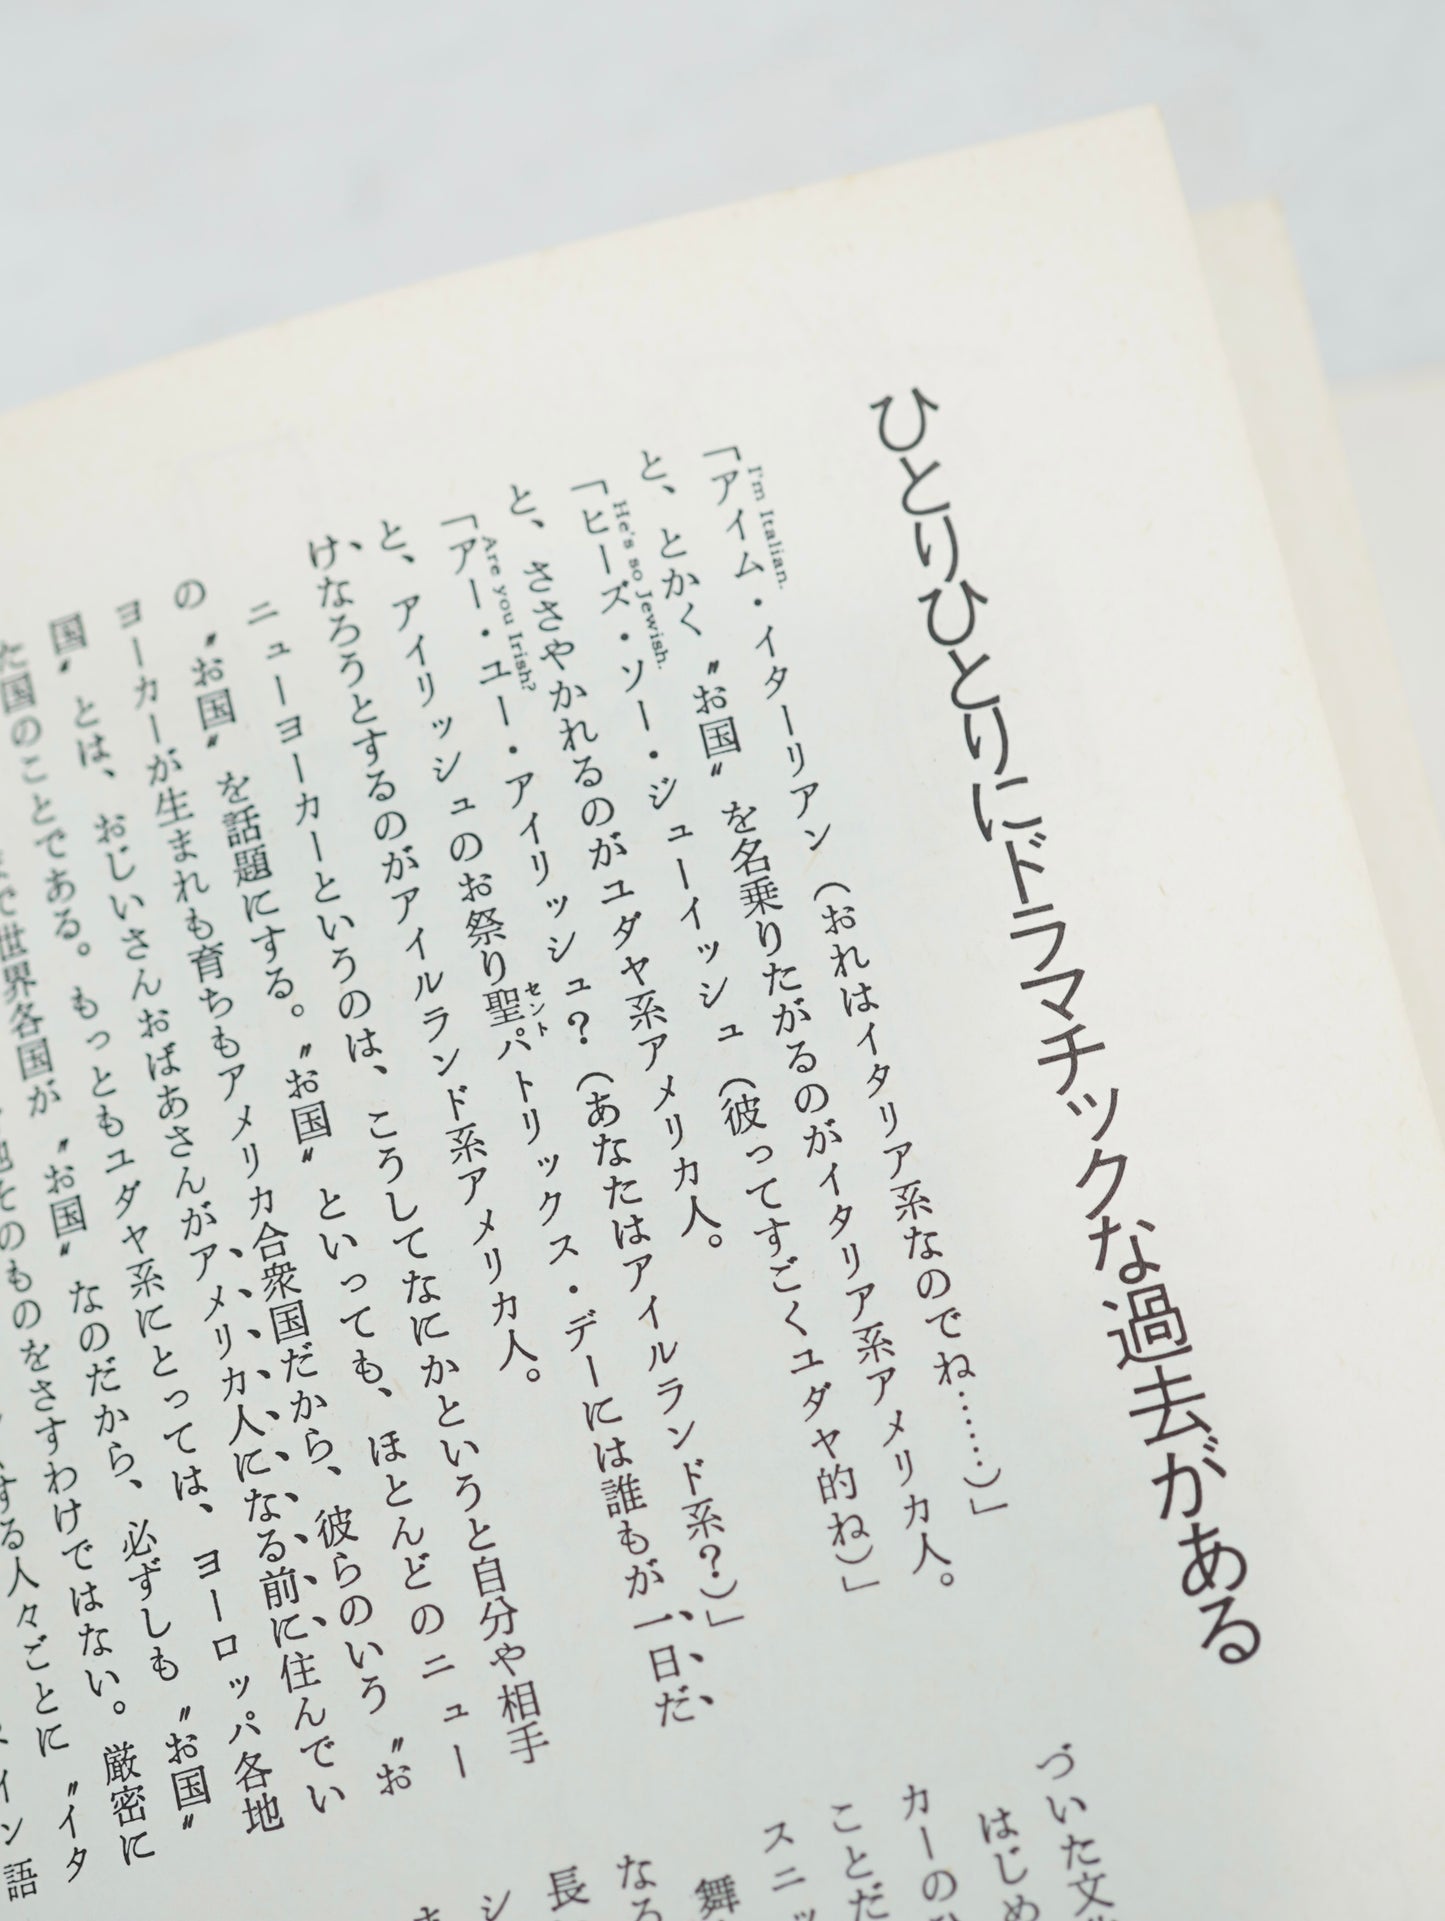 ひとりひとりにドラマチックな過去がある
I'm Italian.
「アイム・イターリアン（おれはイタリア系なのでね……）」
と、とかく〝お国〟を名乗りたがるのがイタリア系アメリカ人。
He's so Jewish.
「ヒーズ・ソー・ジューイッシュ（彼ってすごくユダヤ的ね）」
と、ささやかれるのがユダヤ系アメリカ人。
Are you Irish?
「アー・ユー・アイリッシュ？（あなたはアイルランド系？）」
セント
と、アイリッシュのお祭り聖パトリックス・デーには誰もが一日だ
け、なろうとするのがアイルランド系アメリカ人。
ニューヨーカーというのは、こうしてなにかというと自分や相手
の〝お国〟を話題にする。〝お国〟といっても、ほとんどのニュー
ヨーカーが生まれも育ちもアメリカ合衆国だから、彼らのいう〝お
国〟とは、おじいさんおばあさんがアメリカ人になる前に住んでい
た国のことである。もっともユダヤ系にとっては、ヨーロッパ各地
で世界各国が〝お国〟なのだから、必ずしも〝お国〟
そのものをさすわけではない。厳密に
する人々ごとに〝イタ
イン語
づいた文
はじめ
カーの
ことだ
スニッ
舞
なろ
長
シ